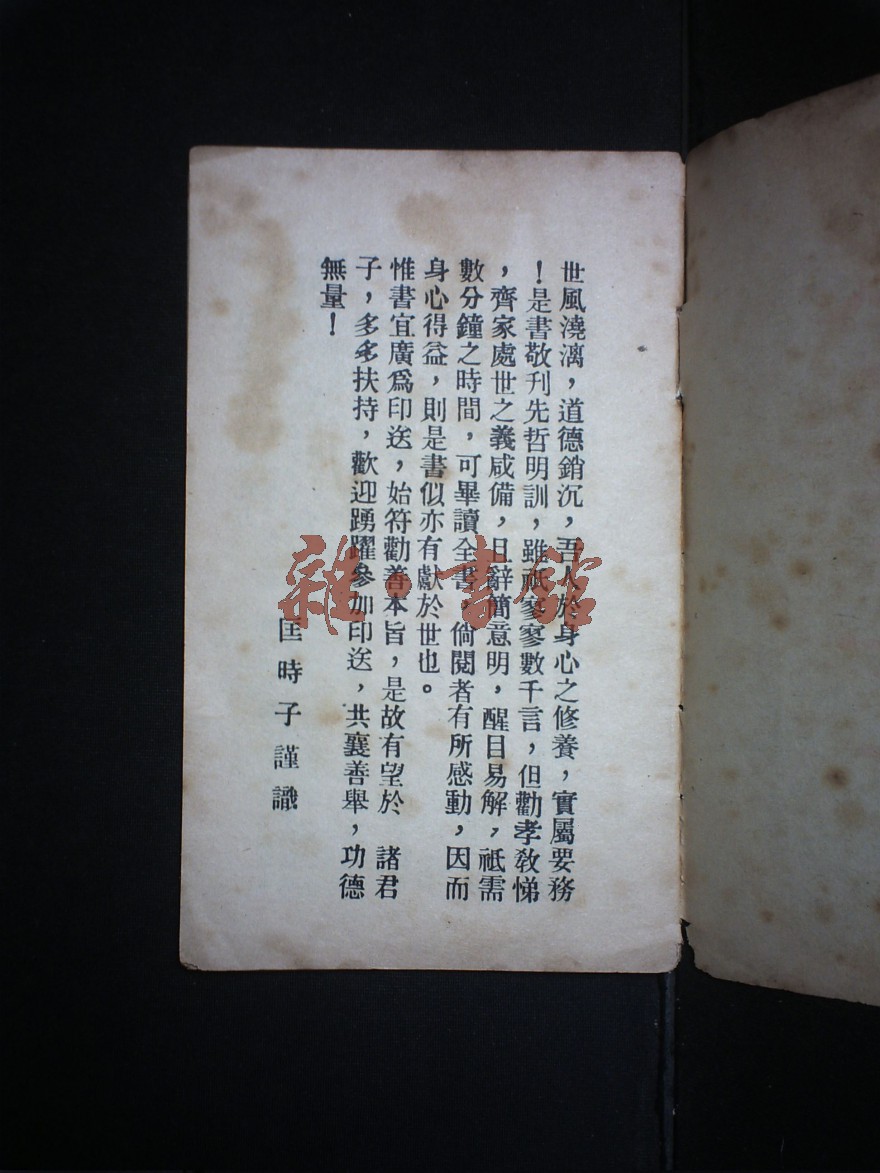 世風澆漓，道德銷沉，吾人於身心之修養，實屬要務
！是書敬刊先哲明訓，雖祇寥寥數千言，但勸孝教悌
，齊家處世之義咸備，且辭簡意明，醒目易解，祗需
數分鐘之時間，可畢讀全書，倘閱者有所感動，因而
身心得益，則是書似亦有獻於世也。
惟書宜廣爲印送，始符勸善本旨，是故有望於 諸君
子，多多扶持，歡迎踴躍參加印送，共襄善舉，功德
無量！
匡時子謹識
雜·書館